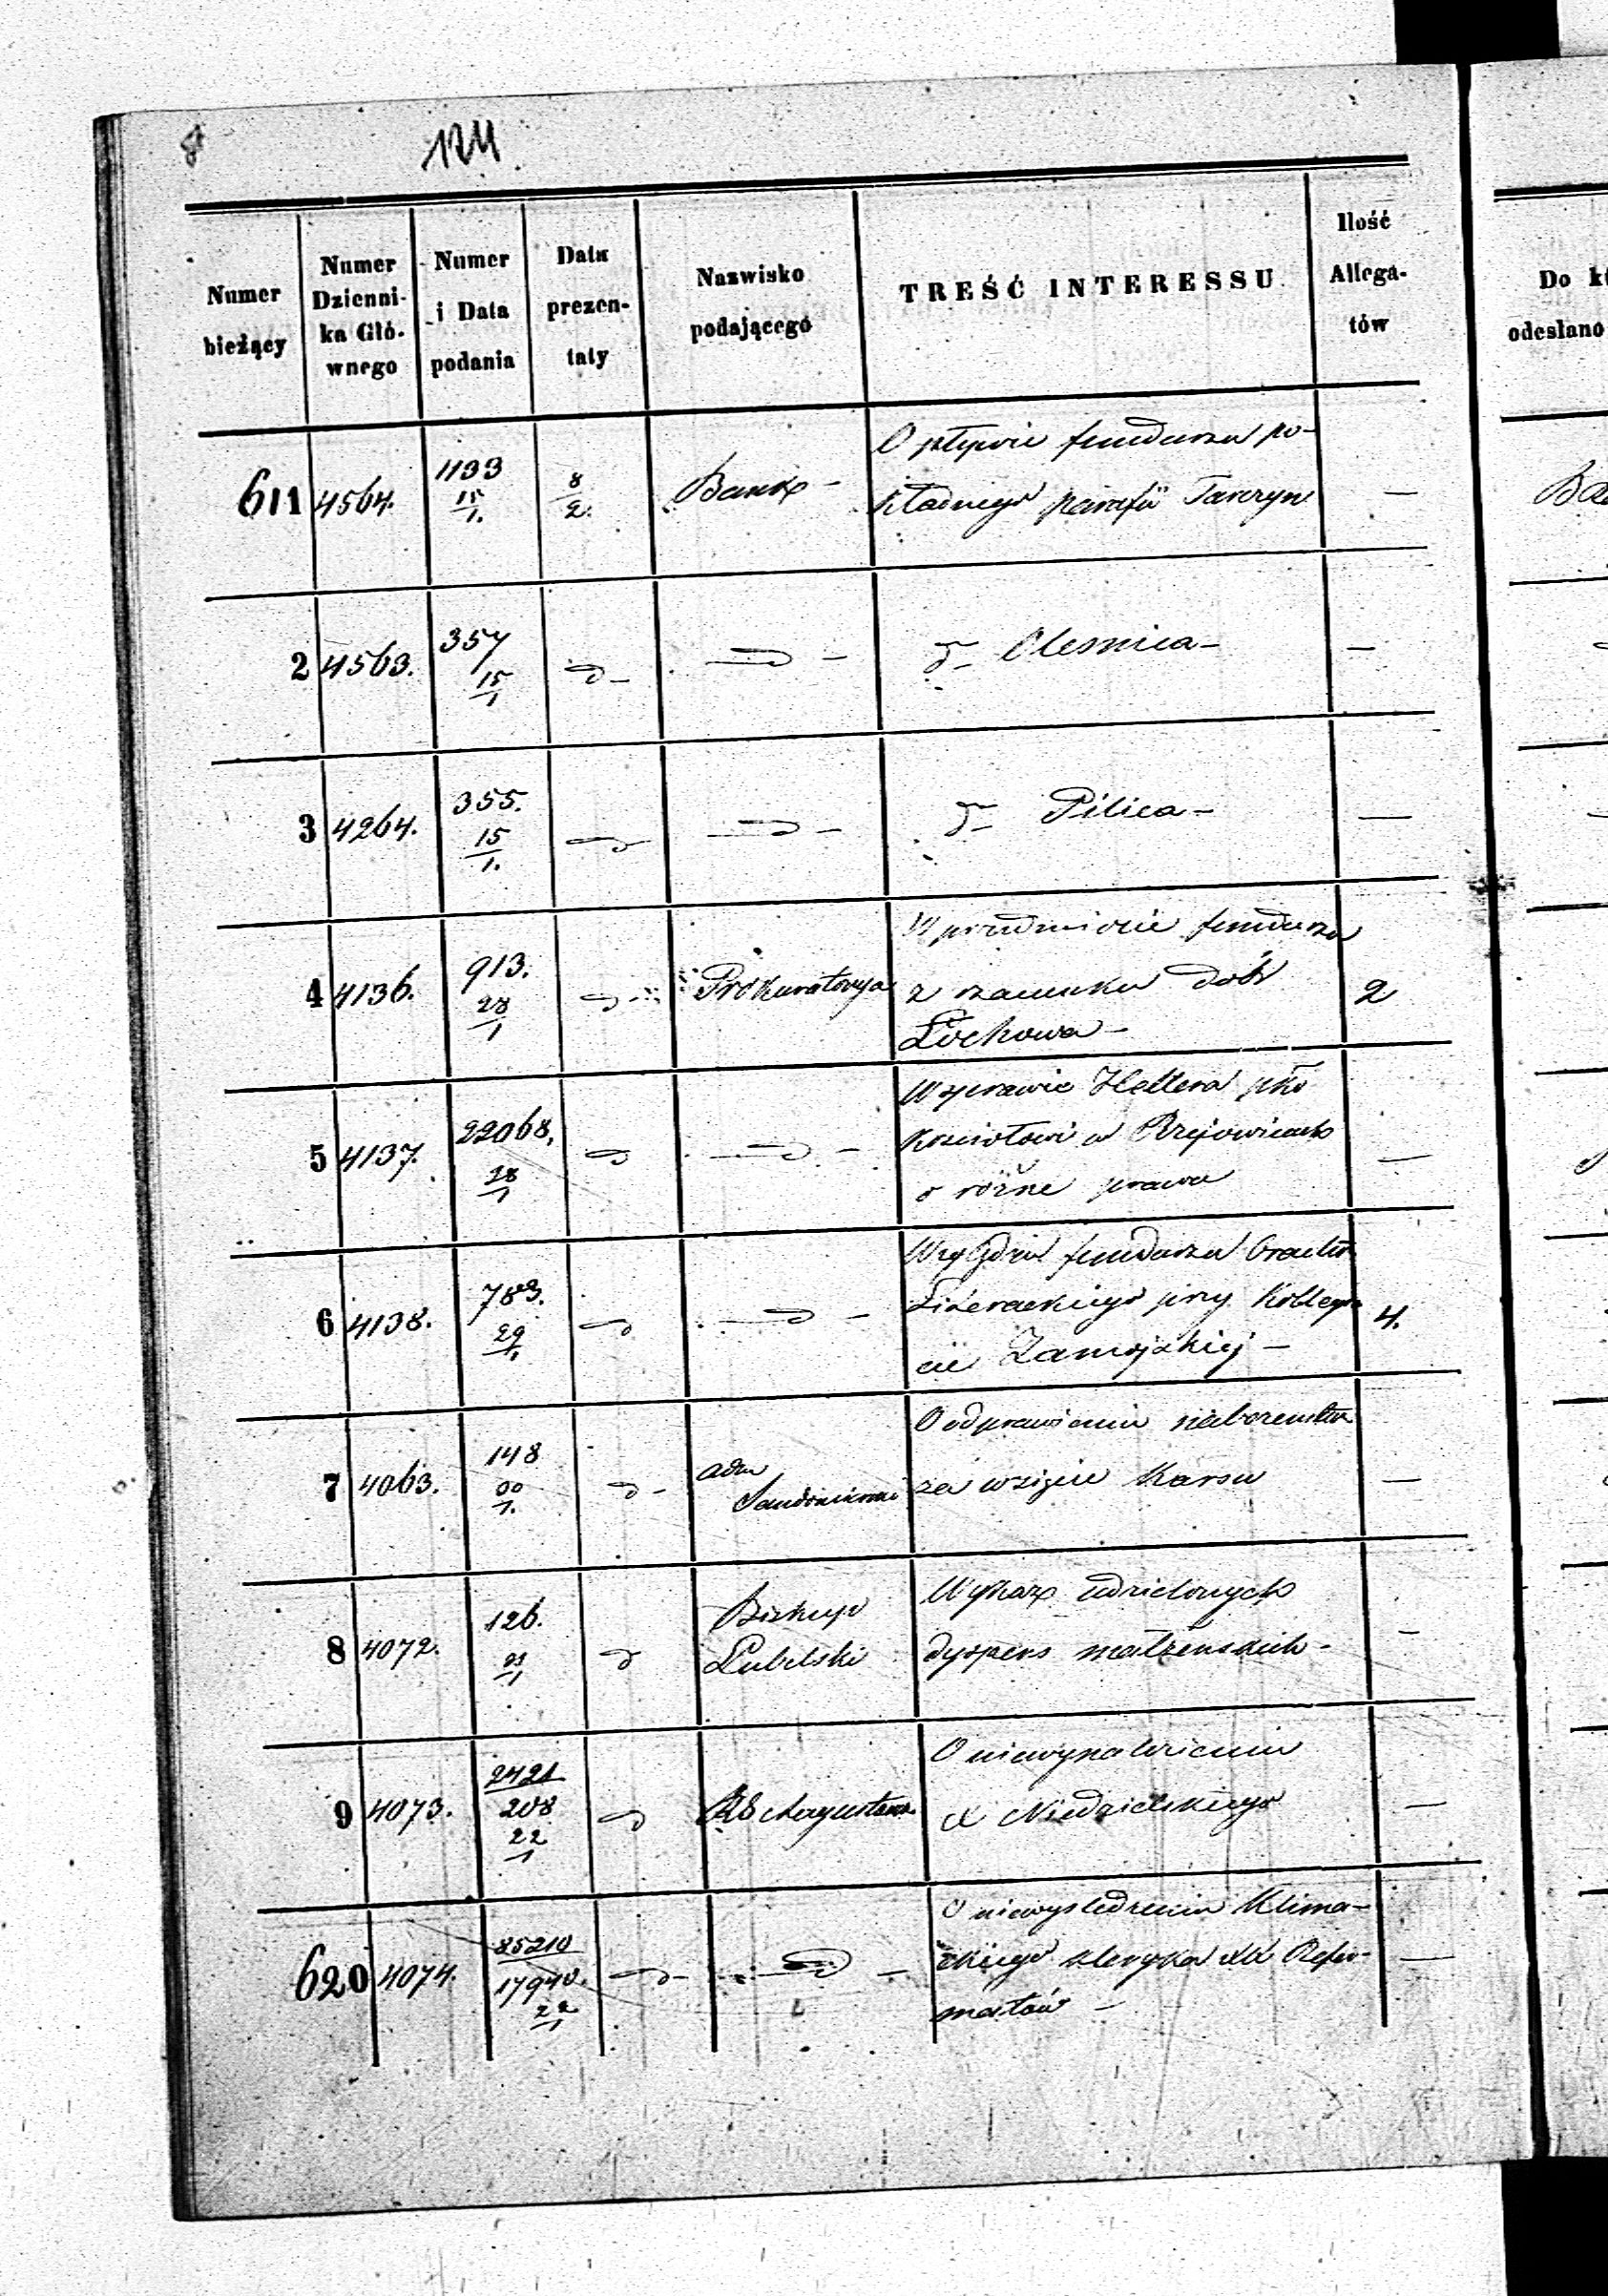 124
Numer bieżący
Numer Dzienni- ka Głó- wnego
Numer i Data podania
Data prezen- taty
Nazwisko podającego
TREŚĆ INTERESSU
Ilość Allega- tów
Do
odesłano
611 4564. 1133 15/1. 8/2. Bank – O wpływie funduszu po-
kładnego parafii Tarczyn —
2 4563. 357 15/1 d– d – d– Olesnica – —
3 4264. 355. 15/1. d d – d– Pilica – —
4 4136. 913. 28/1 d– Prokuratorya W przedmiocie funduszu
z szacunku dóbr 2
Łochowa –
5 4137. 22068. 28/1 d d – W sprawie Hettera pko
Kosciołowi w Rzejowicach —
o różne prawa
6 4138. 783. 29/1. d d – funduszu
Literackiego przy Kollegia 4.
cie Zamojskiej –
7 4063. 148 1. d – adm Sandomierski O odprawieniu nabozenstw
za wzięcie Karsu —
8 4072. 126. 1 d Biskup Lubelski Wykaz udzielonych
dyspens małżenskich – –
9 4073. 2421 208 22/1 d RG Augustows. O niewynalezieniu
X Niedzielskiego —
620 4074. 85210 17940. 22/1 d – d – O niewysledzeniu Klima-
ckiego kleryka XX Refor- —
matów –